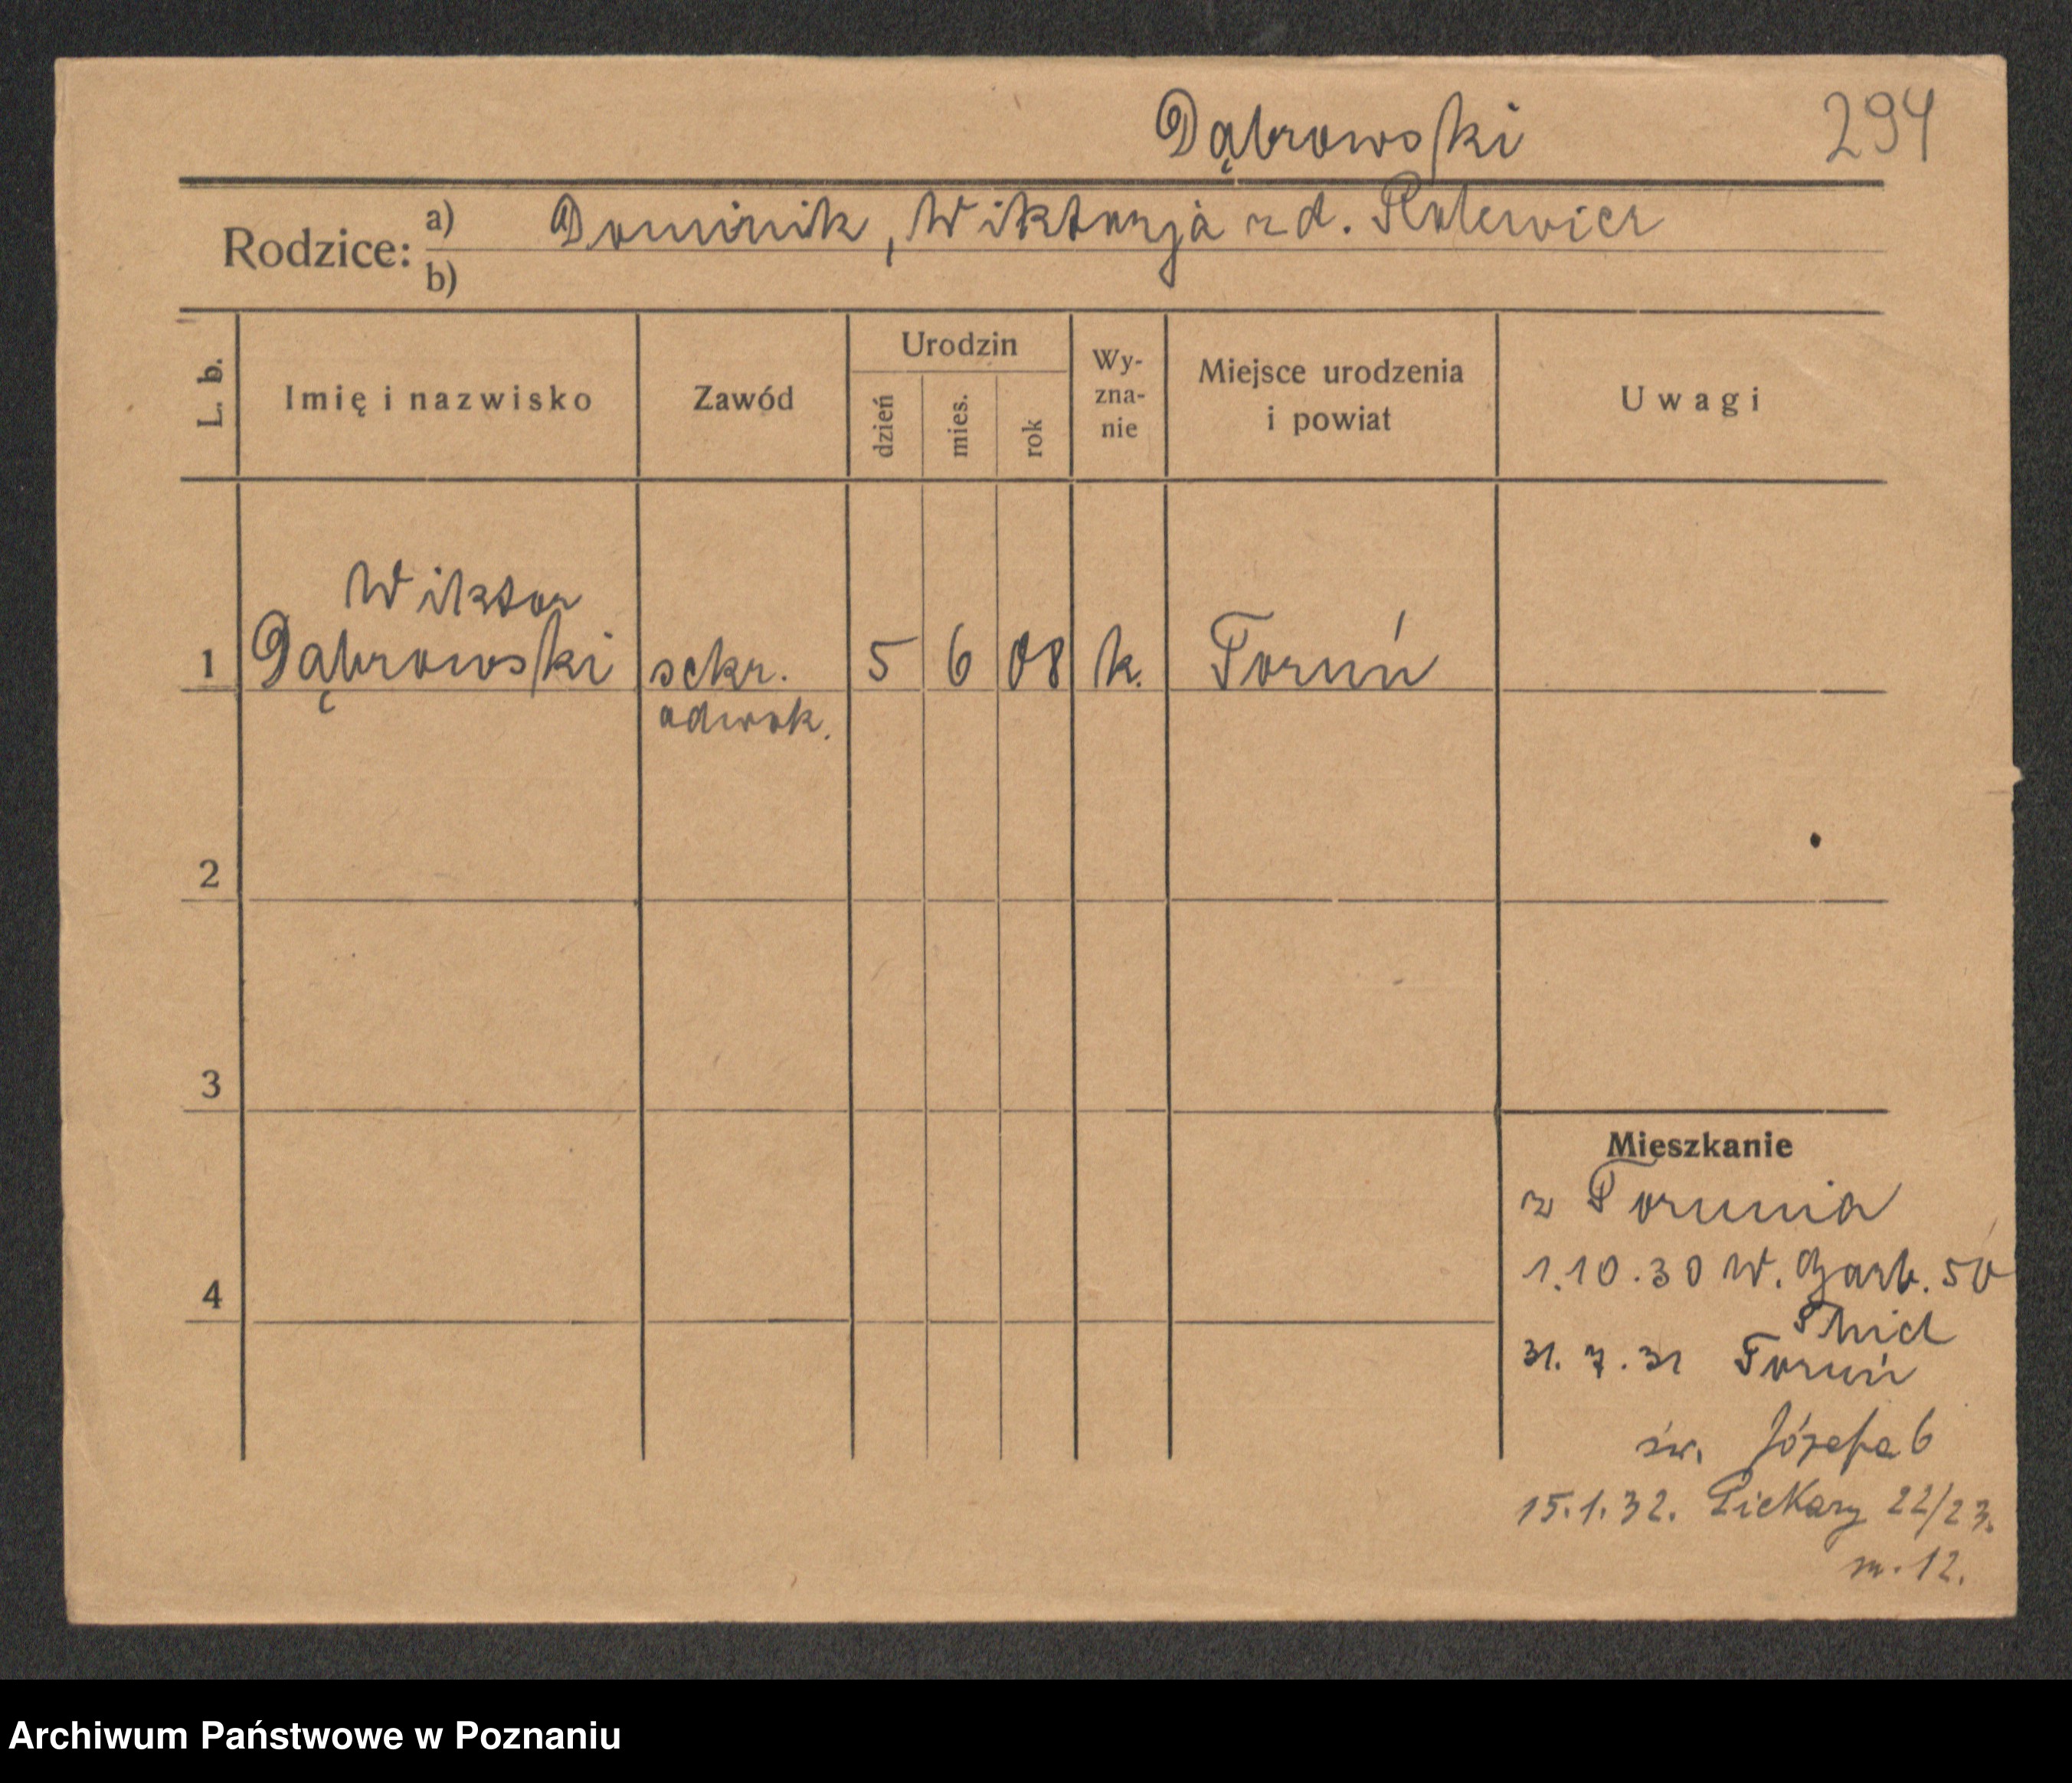 Dąbrowski 294
Rodzice: a) Dominik, Wiktorja z d.
b)
L. b. Imię i nazwisko Zawód Urodzin dzień mies. rok Wy-zna-nie Miejsce urodzenia i powiat Uwagi
Wiktor
1 Dąbrowski sekr. 5 6 08 k. Toruń
adwok.
2
3
Mieszkanie
z Torunia
4 1.10.30 W. Garb. 50
31.7.31 Toruń
św. Józefa 6
15.1.32. Piekary 22/23.
m. 12.
Archiwum Państwowe w Poznaniu